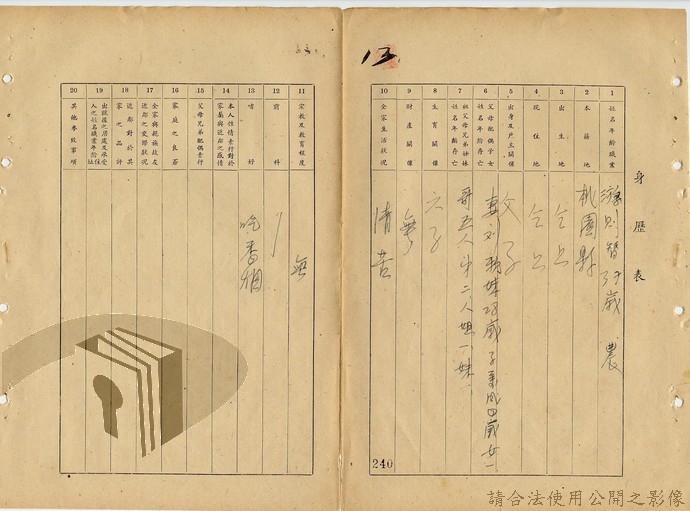 身歷表
1 姓名年齡職業
則智 39歲 農
2 本籍地
桃園縣
3 出生地
仝上
4 現住地
仝上
5 出身及戶主關係
父子
6 父母配偶子女姓名年齡存亡
妻刘 歲 子 四歲 女一
7 祖父母兄弟姊妹姓名年齡存亡
哥五人 弟二人 姐一 妹一
8 生育關係
六子
9 財產關係
無
10 全家生活狀況
清苦
240
11 宗教及教育程度
無
12 前科
13 嗜好
吃香烟
14 本人性情素行對於家屬與近鄰之感情
15 父母兄弟配偶素行
16 家庭之良否
17 全家與親族故左近鄰之交際狀況
18 近鄰對於其家之品評
19 出獄後之居處及承受人之姓名職業年齡住址
20 其他參致事項
請合法使用公開之影像